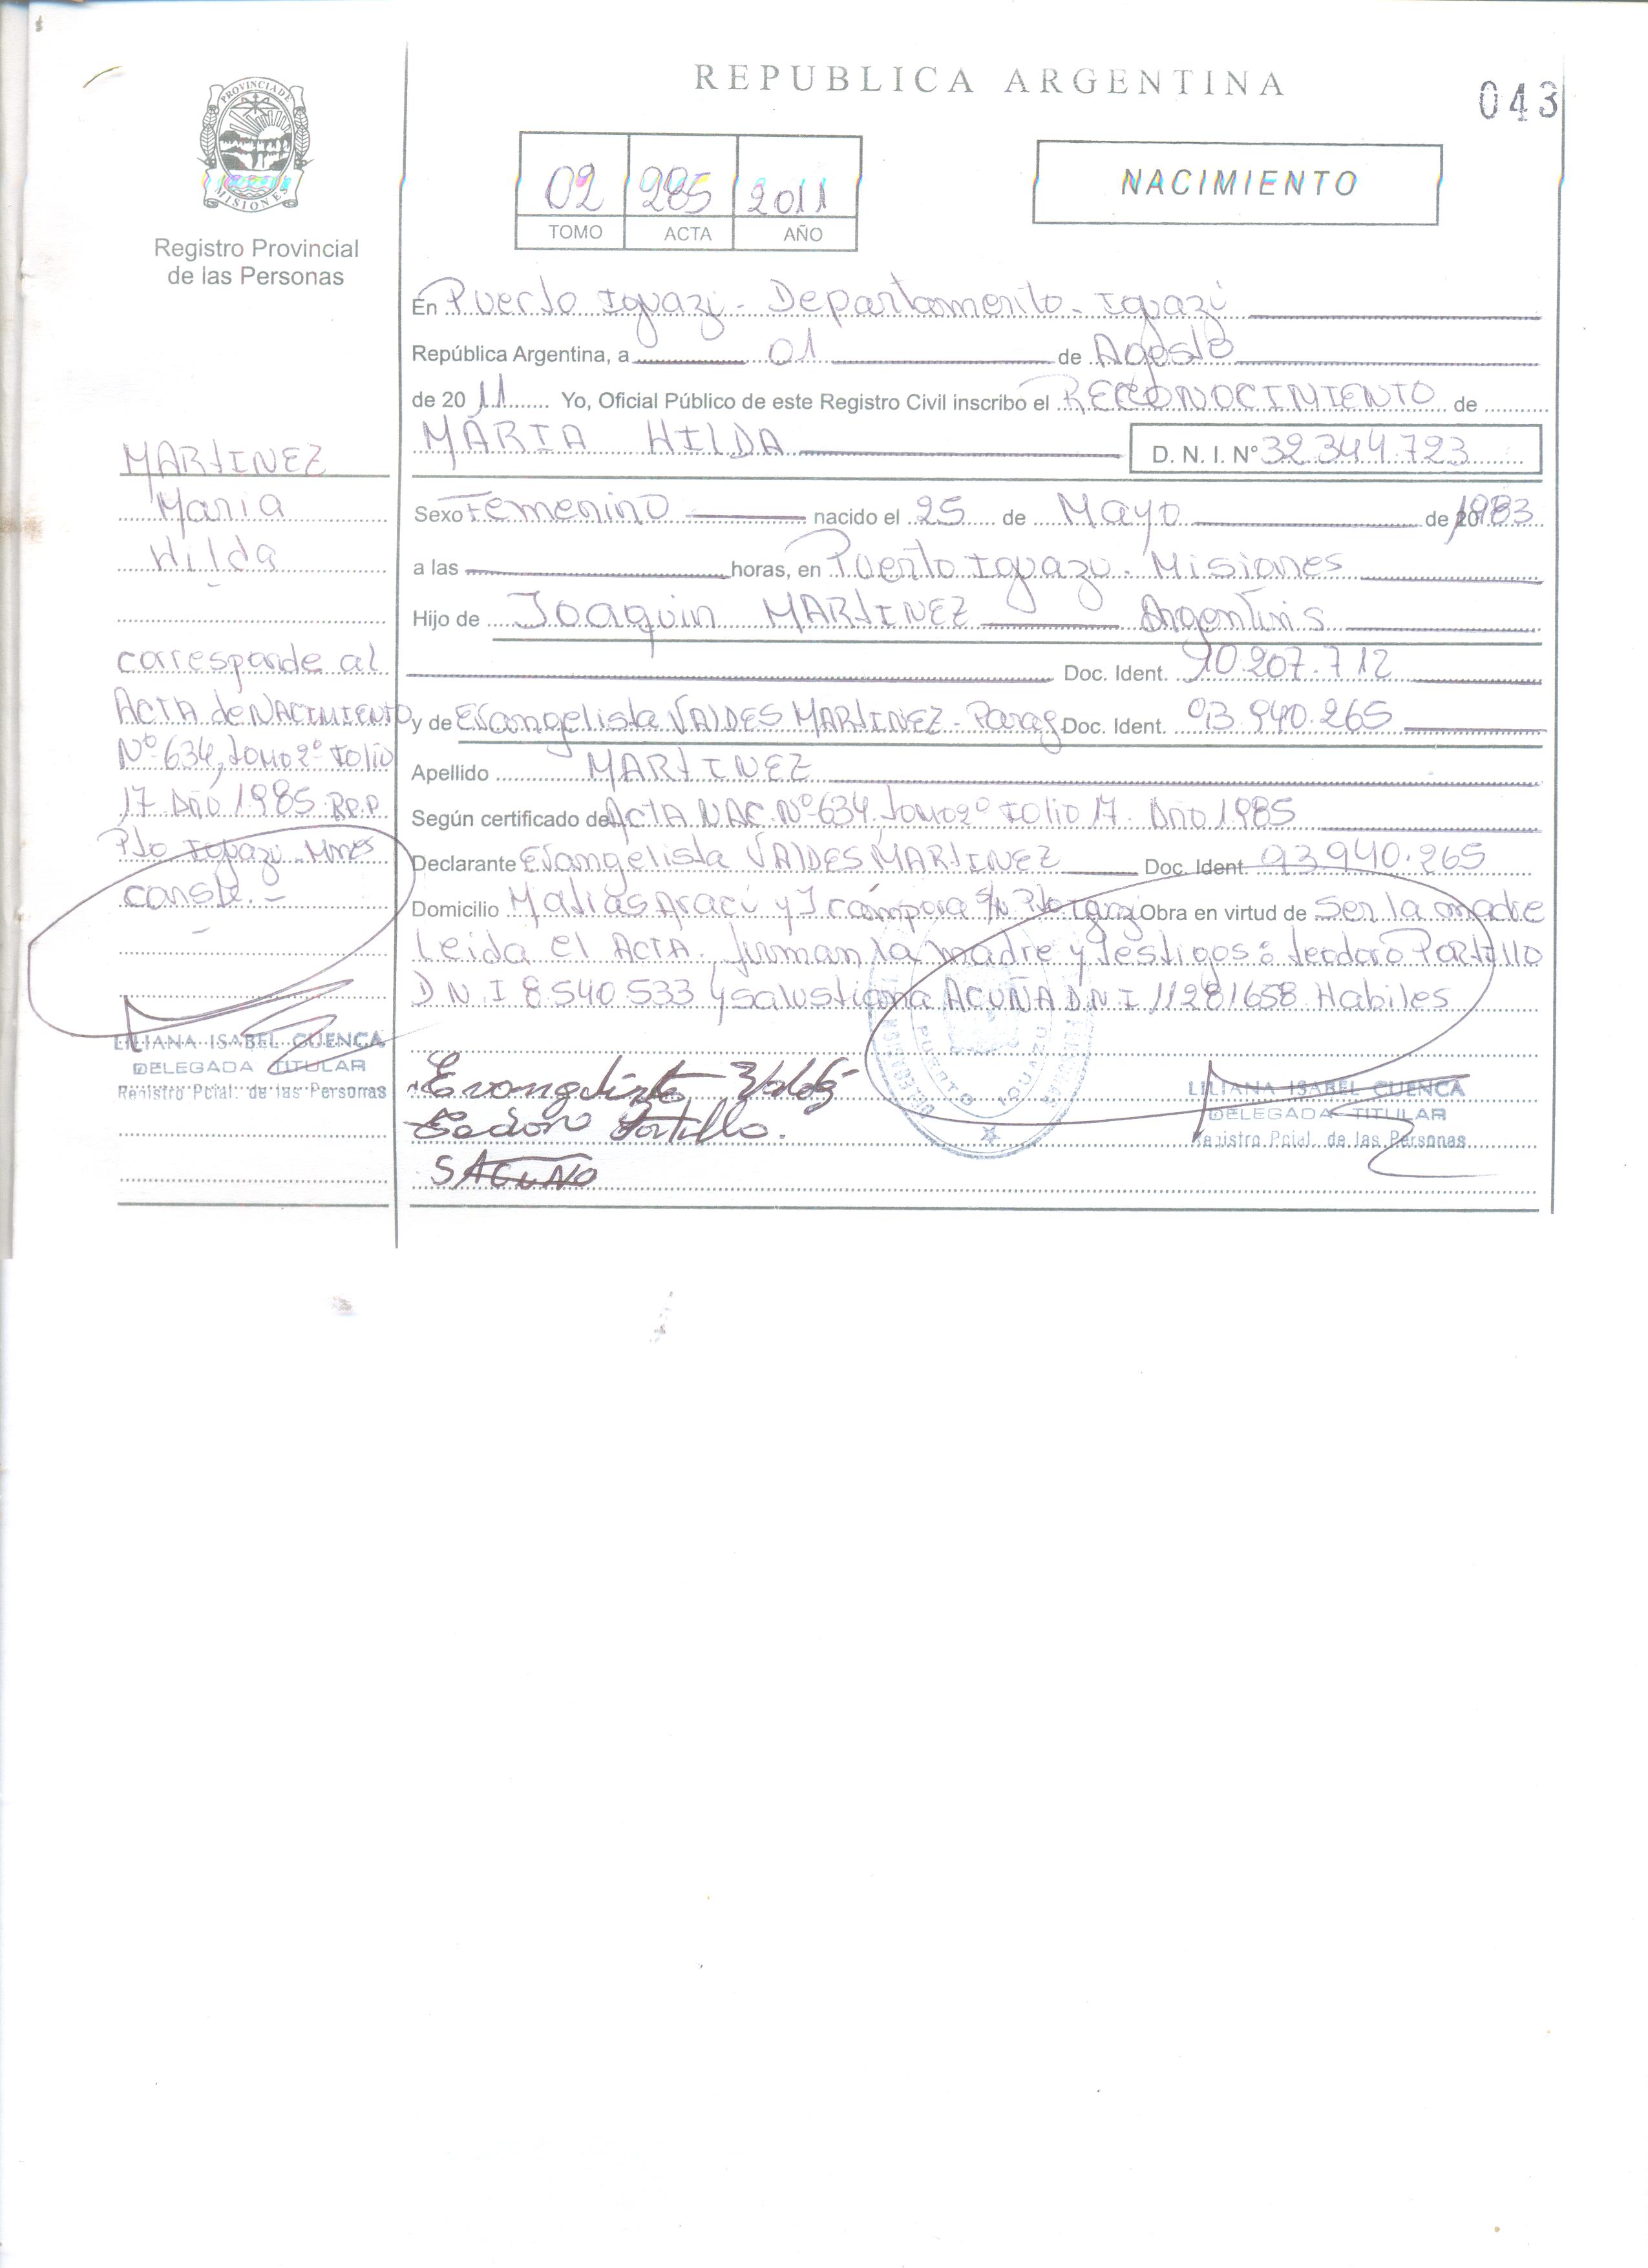 REPUBLICA ARGENTINA
043
PROVINCIA DE
MISIONES
Registro Provincial
de las Personas
02 285 2011
TOMO ACTA AÑO
NACIMIENTO
En Puerto Iguazú - Departamento - Iguazú
República Argentina, a 01 de Agosto
de 2011 Yo, Oficial Público de este Registro Civil inscribo el RECONOCIMIENTO de
MARIA HILDA D. N. I. N° 32.344.723
Sexo Femenino nacido el 25 de Mayo de 1983
a las horas, en Puerto Iguazu. Misiones
Hijo de Joaquin MARTINEZ Argentino
Doc. Ident. 10.207.712
y de Evangelista VALDES MARTINEZ - Parag Doc. Ident. 93.940.265
Apellido MARTINEZ
Según certificado de ACTA NAC. N° 634. Tomo 2° Folio 17. Año 1985
Declarante Evangelista VALDES MARTINEZ Doc. Ident. 93940.265
Domicilio Matias y S/N Pto Iguazú Obra en virtud de Ser la madre
Leida el ACTA. firman la madre y Testigos: Teodoro PORTILLO
D N I 8.540.533 y Salustiana ACUÑA D N I 11281658 Habiles
MARTINEZ
Maria
Hilda
corresponde al
ACTA de NACIMIENTO
N° 634, Tomo 2° Folio
17. Año 1985. R.P.P.
Pto Iguazu - Mnes
Conste. -
LILIANA ISABEL CUENCA
DELEGADA TITULAR
Registro Pcial. de las Personas
Teodoro Portillo.
PUERTO IGUAZU
LILIANA ISABEL CUENCA
DELEGADA TITULAR
Registro Pcial. de las Personas